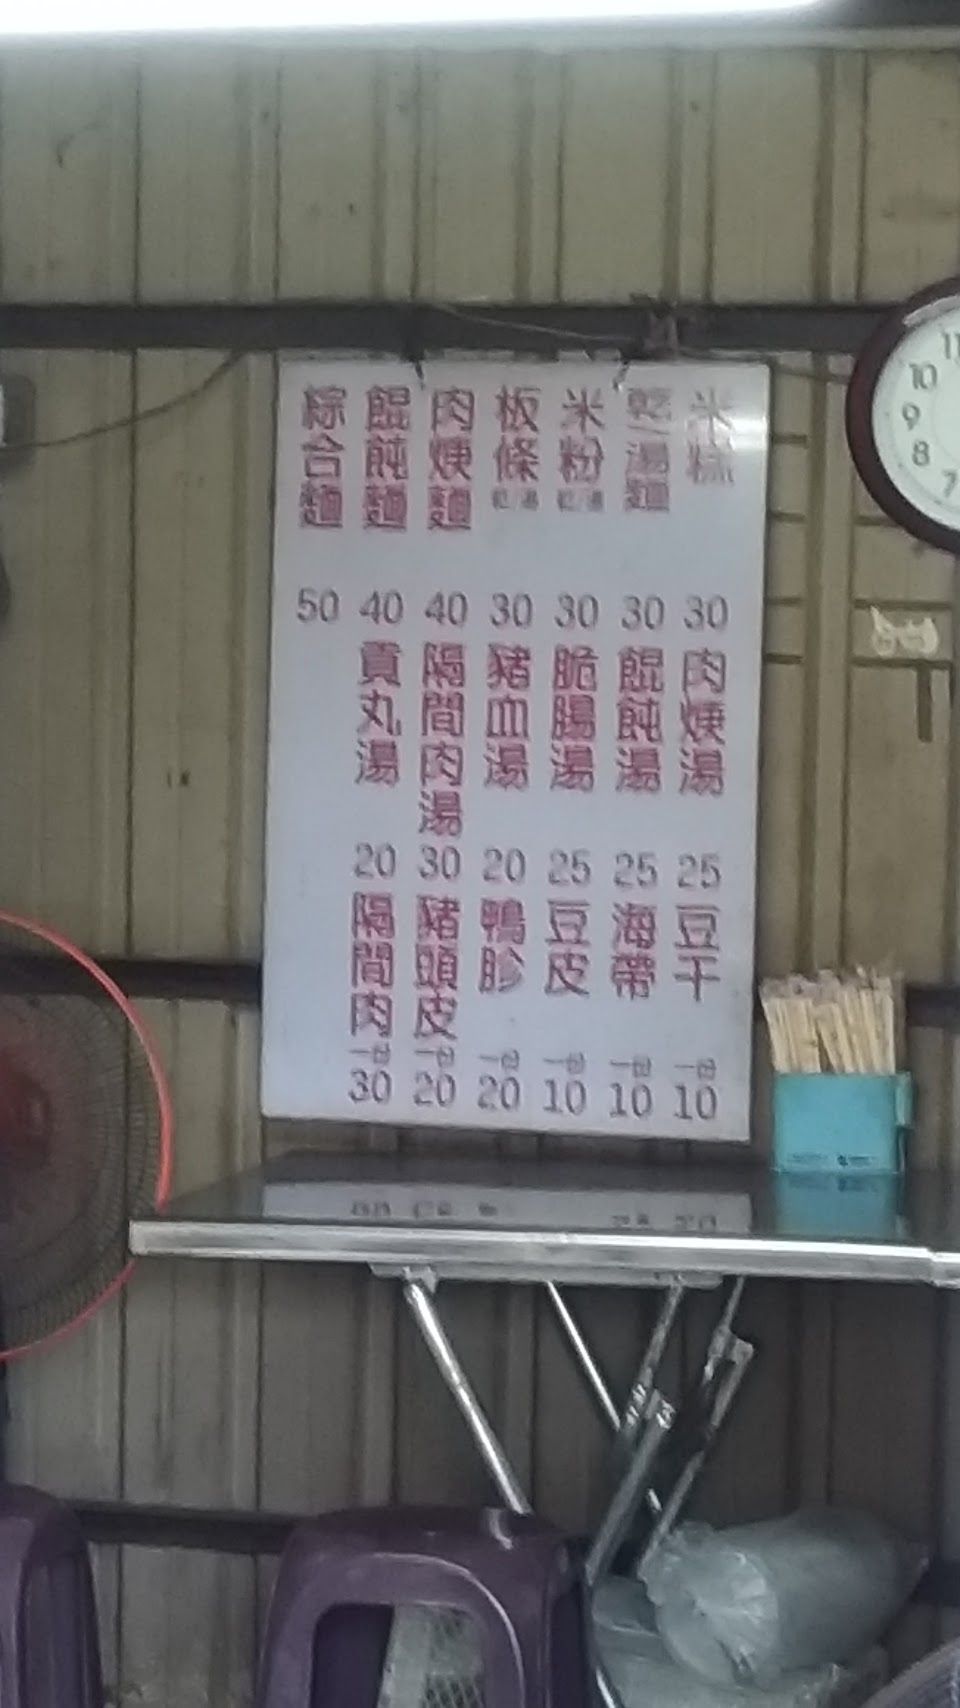 米糕 30
乾/湯麵 30
米粉 乾/湯 30
板條 乾/湯 30
肉焿麵 40
餛飩麵 40
綜合麵 50
肉焿湯 25
餛飩湯 25
脆腸湯 25
豬血湯 20
隔間肉湯 30
貢丸湯 20
豆干 一份 10
海帶 一份 10
豆皮 一份 10
鴨胗 一份 20
豬頭皮 一份 20
隔間肉 一份 30
11
10
9
8
7